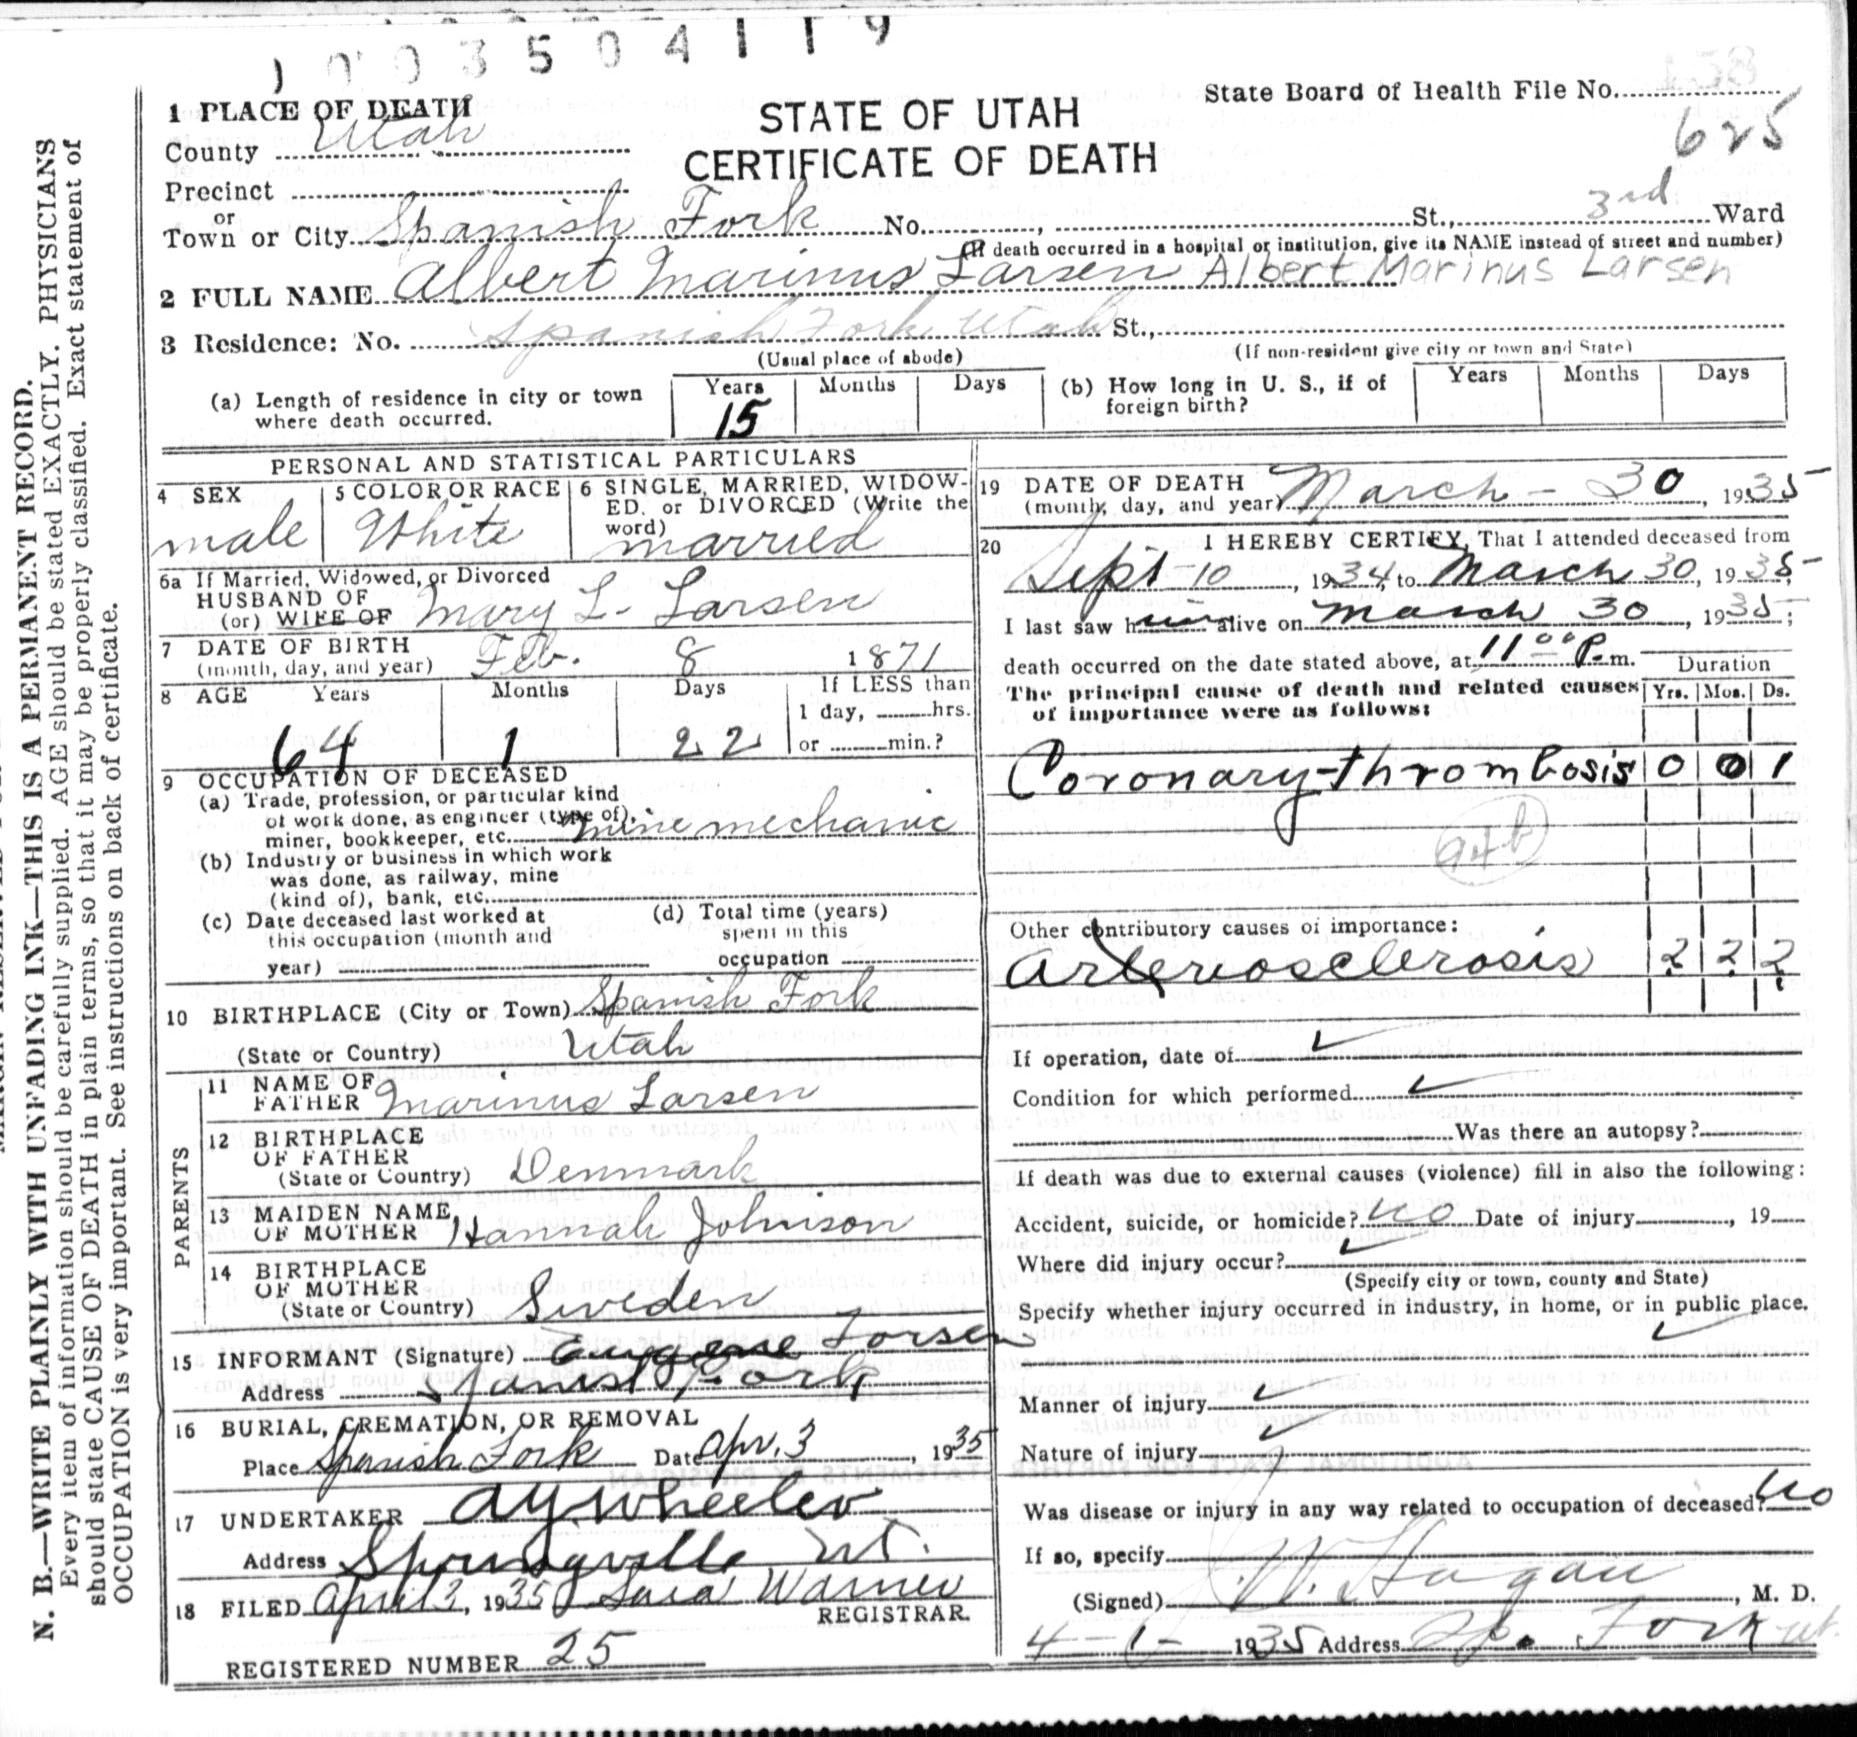 1003504119
State Board of Health File No.
625
STATE OF UTAH
CERTIFICATE OF DEATH
1 PLACE OF DEATH
County Utah
Precinct
or
Town or City Spanish Fork No. , St., 3rd Ward
(If death occurred in a hospital or institution, give its NAME instead of street and number)
2 FULL NAME Albert Marinus Larsen Albert Marinus Larsen
3 Residence: No. Spanish Fork Utah St.,
(Usual place of abode) (If non-resident give city or town and State)
(a) Length of residence in city or town where death occurred. Years 15 Months Days
(b) How long in U. S., if of foreign birth? Years Months Days
PERSONAL AND STATISTICAL PARTICULARS
4 SEX male
5 COLOR OR RACE White
6 SINGLE, MARRIED, WIDOW-
ED. or DIVORCED (Write the
word) married
6a If Married, Widowed, or Divorced
HUSBAND OF
(or) WIFE OF Mary L. Larsen
7 DATE OF BIRTH
(month, day, and year) Feb. 8 1871
8 AGE Years 64 Months 1 Days 22
If LESS than
1 day, hrs.
or min.?
9 OCCUPATION OF DECEASED
(a) Trade, profession, or particular kind
of work done, as engineer (type of),
miner, bookkeeper, etc. mine mechanic
(b) Industry or business in which work
was done, as railway, mine
(kind of), bank, etc.
(c) Date deceased last worked at
this occupation (month and
year)
(d) Total time (years)
spent in this
occupation
10 BIRTHPLACE (City or Town) Spanish Fork
(State or Country) Utah
PARENTS
11 NAME OF
FATHER Marinus Larsen
12 BIRTHPLACE
OF FATHER
(State or Country) Denmark
13 MAIDEN NAME
OF MOTHER Hannah Johnson
14 BIRTHPLACE
OF MOTHER
(State or Country) Sweden
15 INFORMANT (Signature) Eugene Larsen
Address Spanish Fork
16 BURIAL, CREMATION, OR REMOVAL
Place Spanish Fork Date Apr. 3, 1935
17 UNDERTAKER A Y Wheeler
Address Springville Ut.
18 FILED April 3, 1935 Sara Warner
REGISTRAR.
REGISTERED NUMBER 25
19 DATE OF DEATH
(month, day, and year) March - 30, 1935
20 I HEREBY CERTIFY, That I attended deceased from
Sept-10, 1934 to March 30, 1935
I last saw him alive on March 30, 1935;
death occurred on the date stated above, at 11 00 P. m.
The principal cause of death and related causes
of importance were as follows:
Duration
Yrs. Mos. Ds.
Coronary-thrombosis 0 0 1
94b
Other contributory causes of importance:
Arteriosclerosis 2 2 2
If operation, date of
Condition for which performed
Was there an autopsy?
If death was due to external causes (violence) fill in also the following:
Accident, suicide, or homicide? no Date of injury , 19
Where did injury occur?
(Specify city or town, county and State)
Specify whether injury occurred in industry, in home, or in public place.
Manner of injury
Nature of injury
Was disease or injury in any way related to occupation of deceased? no
If so, specify
(Signed) J. W. Hagan, M. D.
4-1- 1935 Address Sp. Fork Ut.
N. B.—WRITE PLAINLY WITH UNFADING INK—THIS IS A PERMANENT RECORD.
Every item of information should be carefully supplied. AGE should be stated EXACTLY. PHYSICIANS
should state CAUSE OF DEATH in plain terms, so that it may be properly classified. Exact statement of
OCCUPATION is very important. See instructions on back of certificate.